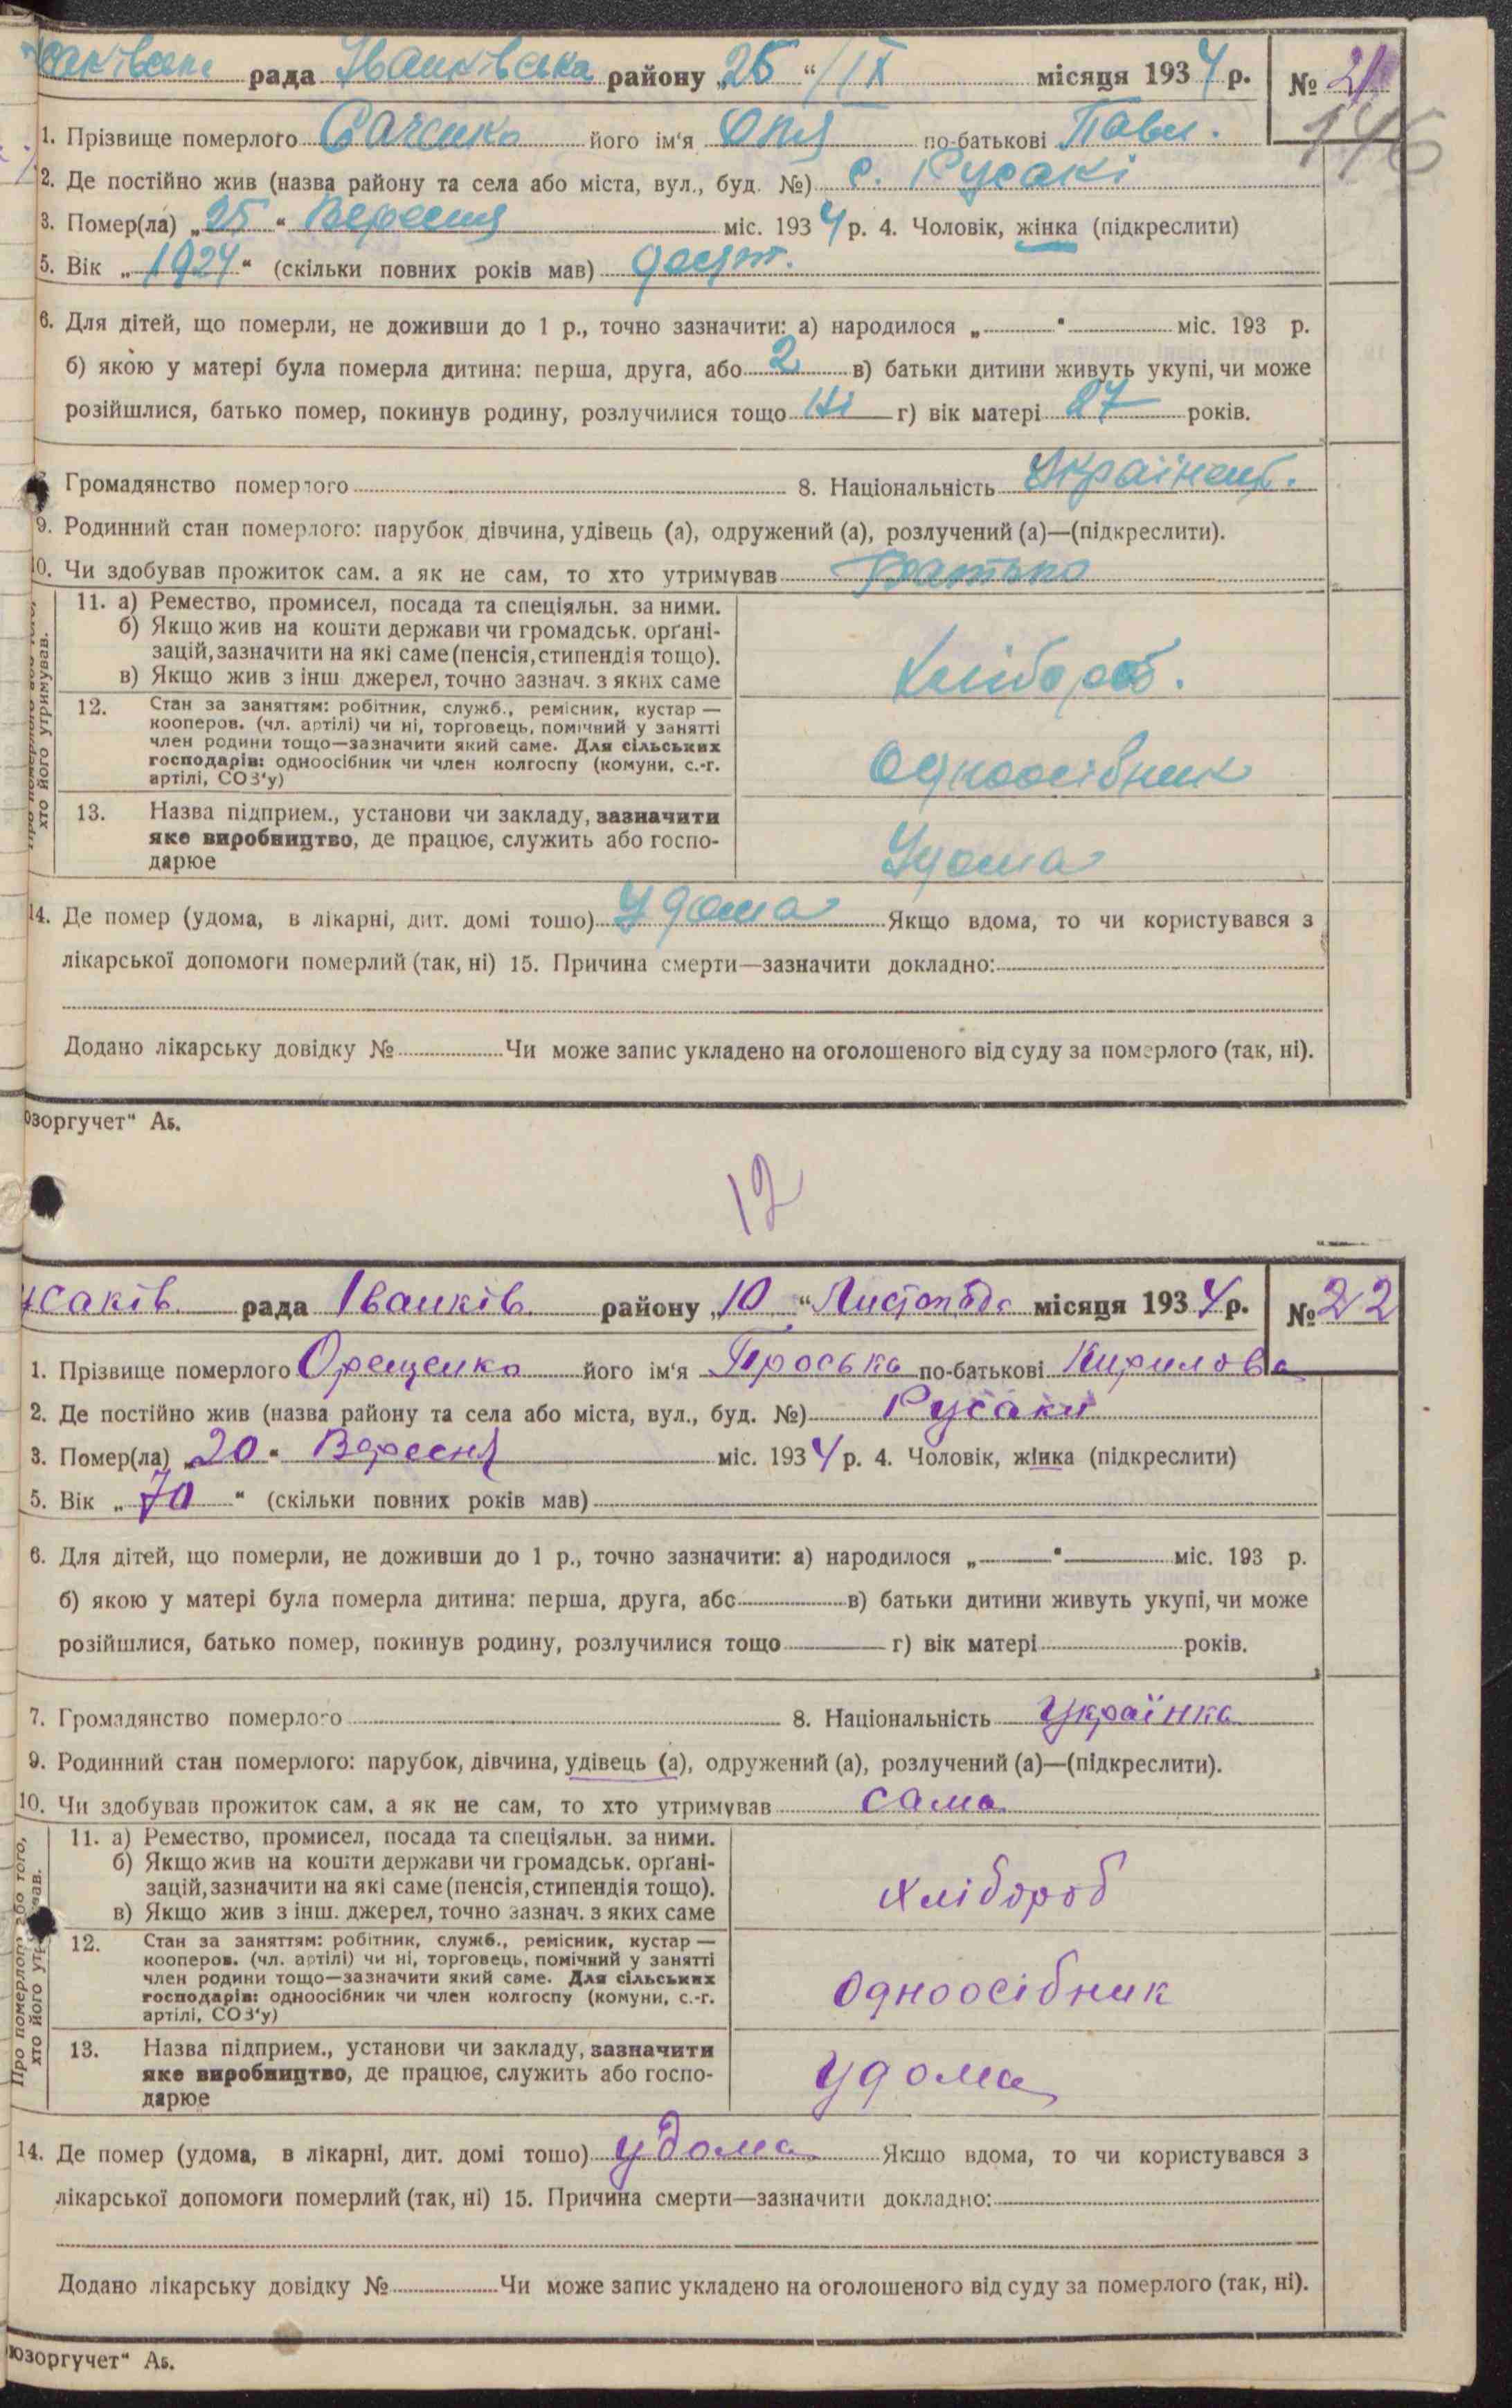 рада Іванківська району „25“ ІХ місяця 1934 р. № 21
146
1. Прізвище померлого його ім'я по-батькові Павл.
2. Де постійно жив (назва району та села або міста, вул., буд. №) с. Русакі
3. Помер(ла) „25“ Вересня міс. 1934 р. 4. Чоловік, жінка (підкреслити)
5. Вік „1924“ (скільки повних років мав)
6. Для дітей, що померли, не доживши до 1 р., точно зазначити: а) народилося „ “ міс. 193 р.
б) якою у матері була померла дитина: перша, друга, або 2 в) батьки дитини живуть укупі, чи може
розійшлися, батько помер, покинув родину, розлучилися тощо Ні г) вік матері 27 років.
Громадянство померлого 8. Національність Українець.
9. Родинний стан померлого: парубок дівчина, удівець (а), одружений (а), розлучений (а)—(підкреслити).
10. Чи здобував прожиток сам, а як не сам, то хто утримував Батько
хто його утримував.
11. а) Ремество, промисел, посада та спеціяльн. за ними.
б) Якщо жив на кошти держави чи громадськ. орґані-
зацій, зазначити на які саме (пенсія, стипендія тощо).
в) Якщо жив з інш джерел, точно зазнач. з яких саме
Хлібороб.
12. Стан за заняттям: робітник, служб., ремісник, кустар —
кооперов. (чл. артілі) чи ні, торговець, помічний у занятті
член родини тощо—зазначити який саме. Для сільських
господарів: одноосібник чи член колгоспу (комуни, с.-г.
артілі, СОЗ'у)
Одноосібник
13. Назва підприєм., установи чи закладу, зазначити
яке виробництво, де працює, служить або госпо-
дарює
Удома
14. Де помер (удома, в лікарні, дит. домі тощо) Удома Якщо вдома, то чи користувався з
лікарської допомоги померлий (так, ні) 15. Причина смерти—зазначити докладно:
Додано лікарську довідку № Чи може запис укладено на оголошеного від суду за померлого (так, ні).
озоргучет“ А5.
12
саків рада Іванків району „10“ Листопада місяця 1934 р. № 22
1. Прізвище померлого Орещенко його ім'я Проська по-батькові Кирилова
2. Де постійно жив (назва району та села або міста, вул., буд. №) Русаки
3. Помер(ла) „20“ Вересня міс. 1934 р. 4. Чоловік, жінка (підкреслити)
5. Вік „70“ (скільки повних років мав)
6. Для дітей, що померли, не доживши до 1 р., точно зазначити: а) народилося „ “ міс. 193 р.
б) якою у матері була померла дитина: перша, друга, або в) батьки дитини живуть укупі, чи може
розійшлися, батько помер, покинув родину, розлучилися тощо г) вік матері років.
7. Громадянство померлого 8. Національність Українка
9. Родинний стан померлого: парубок, дівчина, удівець (а), одружений (а), розлучений (а)—(підкреслити).
10. Чи здобував прожиток сам, а як не сам, то хто утримував сама
Про померлого або того,
хто його утримував.
11. а) Ремество, промисел, посада та спеціяльн. за ними.
б) Якщо жив на кошти держави чи громадськ. орґані-
зацій, зазначити на які саме (пенсія, стипендія тощо).
в) Якщо жив з інш. джерел, точно зазнач. з яких саме
Хлібороб
12. Стан за заняттям: робітник, служб., ремісник, кустар —
кооперов. (чл. артілі) чи ні, торговець, помічний у занятті
член родини тощо—зазначити який саме. Для сільських
господарів: одноосібник чи член колгоспу (комуни, с.-г.
артілі, СОЗ'у)
Одноосібник
13. Назва підприєм., установи чи закладу, зазначити
яке виробництво, де працює, служить або госпо-
дарює
удома
14. Де помер (удома, в лікарні, дит. домі тощо) удома Якщо вдома, то чи користувався з
лікарської допомоги померлий (так, ні) 15. Причина смерти—зазначити докладно:
Додано лікарську довідку № Чи може запис укладено на оголошеного від суду за померлого (так, ні).
юзоргучет“ А5.